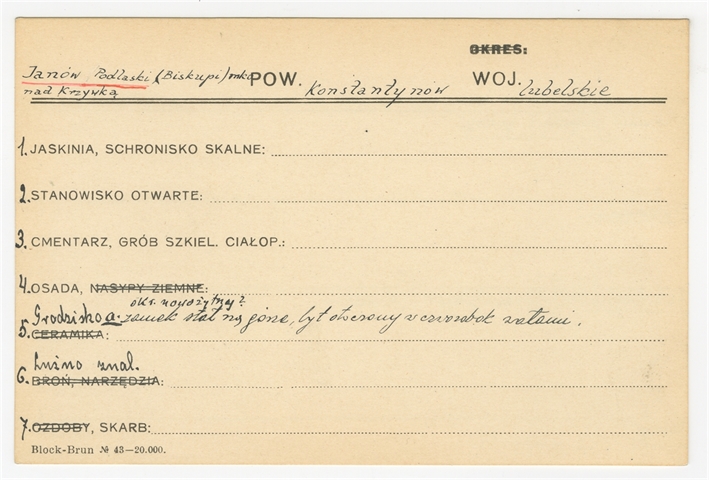 OKRES:
Janów Podlaski (Biskupi) mko POW. Konstantynów WOJ. lubelskie
nad Krzywką
1. JASKINIA, SCHRONISKO SKALNE:
2. STANOWISKO OTWARTE:
3. CMENTARZ, GRÓB SZKIEL. CIAŁOP.:
4. OSADA, NASYPY ZIEMNE:
okr. nowożytny?
Grodzisko a. zamek stał na górze, był otoczony w czworobok wałami.
5. CERAMIKA:
Luźno znal.
6. BROŃ, NARZĘDZIA:
7. OZDOBY, SKARB:
Block-Brun № 43—20.000.